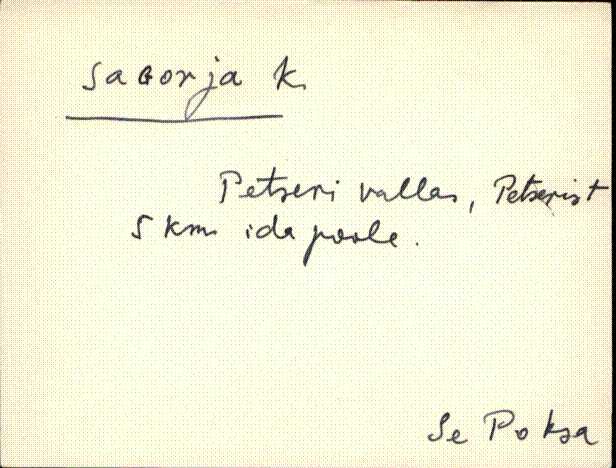 saGorja k.
Petseri vallas, Petserist
5 km ida poole.
Se Poksa